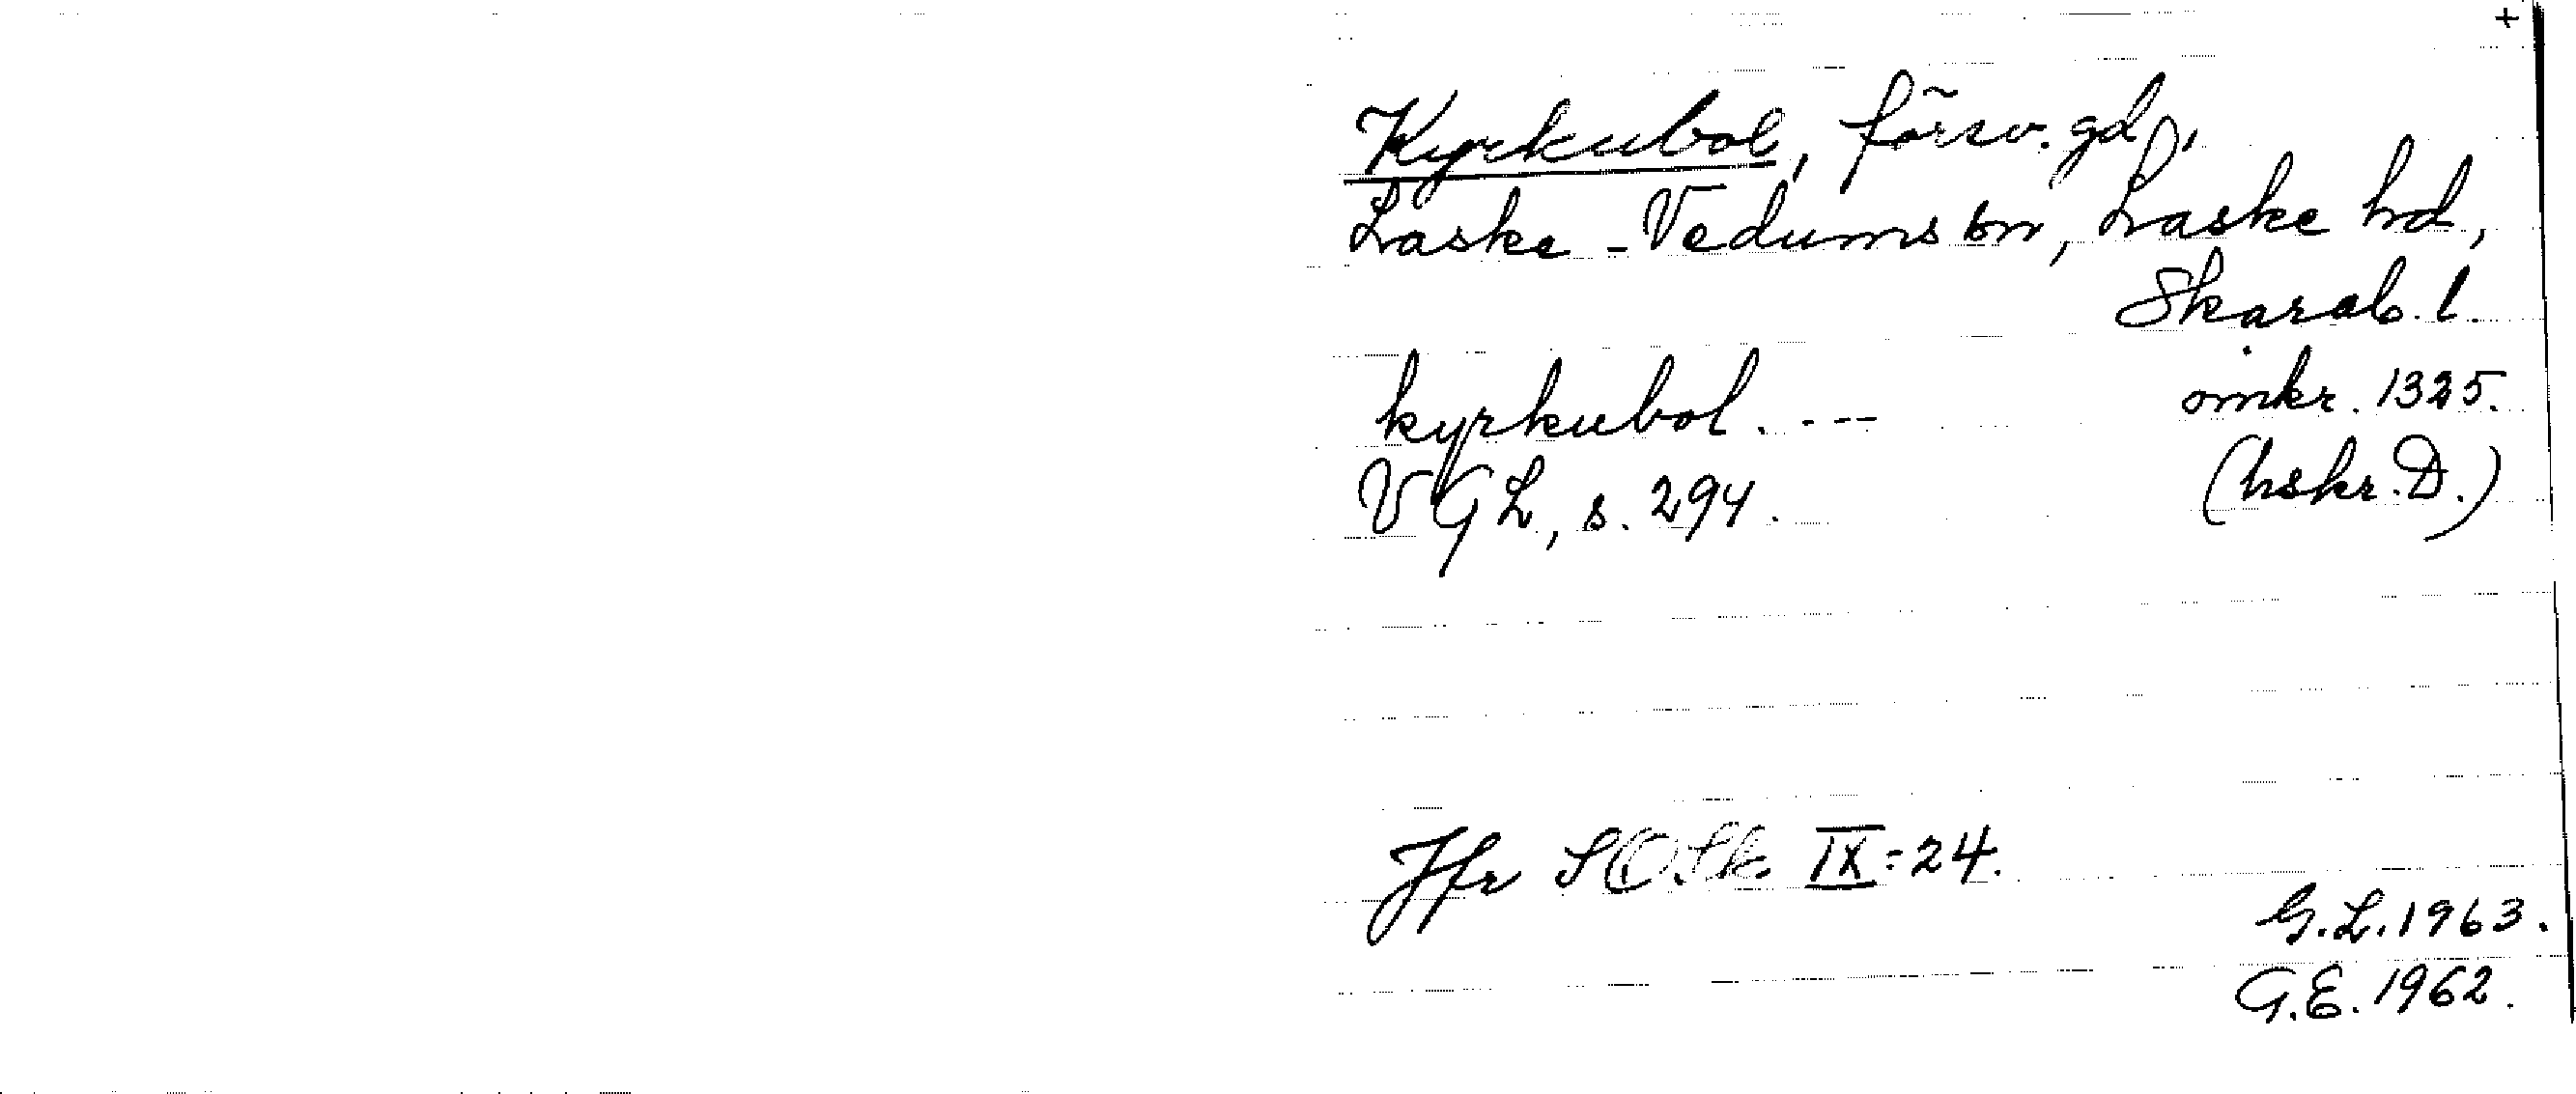 +
Kyrkubol, försv. gd,
Laske-Vedums sn, Laske hd,
Skarab. l.
kyrkubol. --- omkr. 1325.
VGL, s. 294. (hskr. D.)
Jfr SOSk. IX:24.
G.L. 1963.
G.E. 1962.